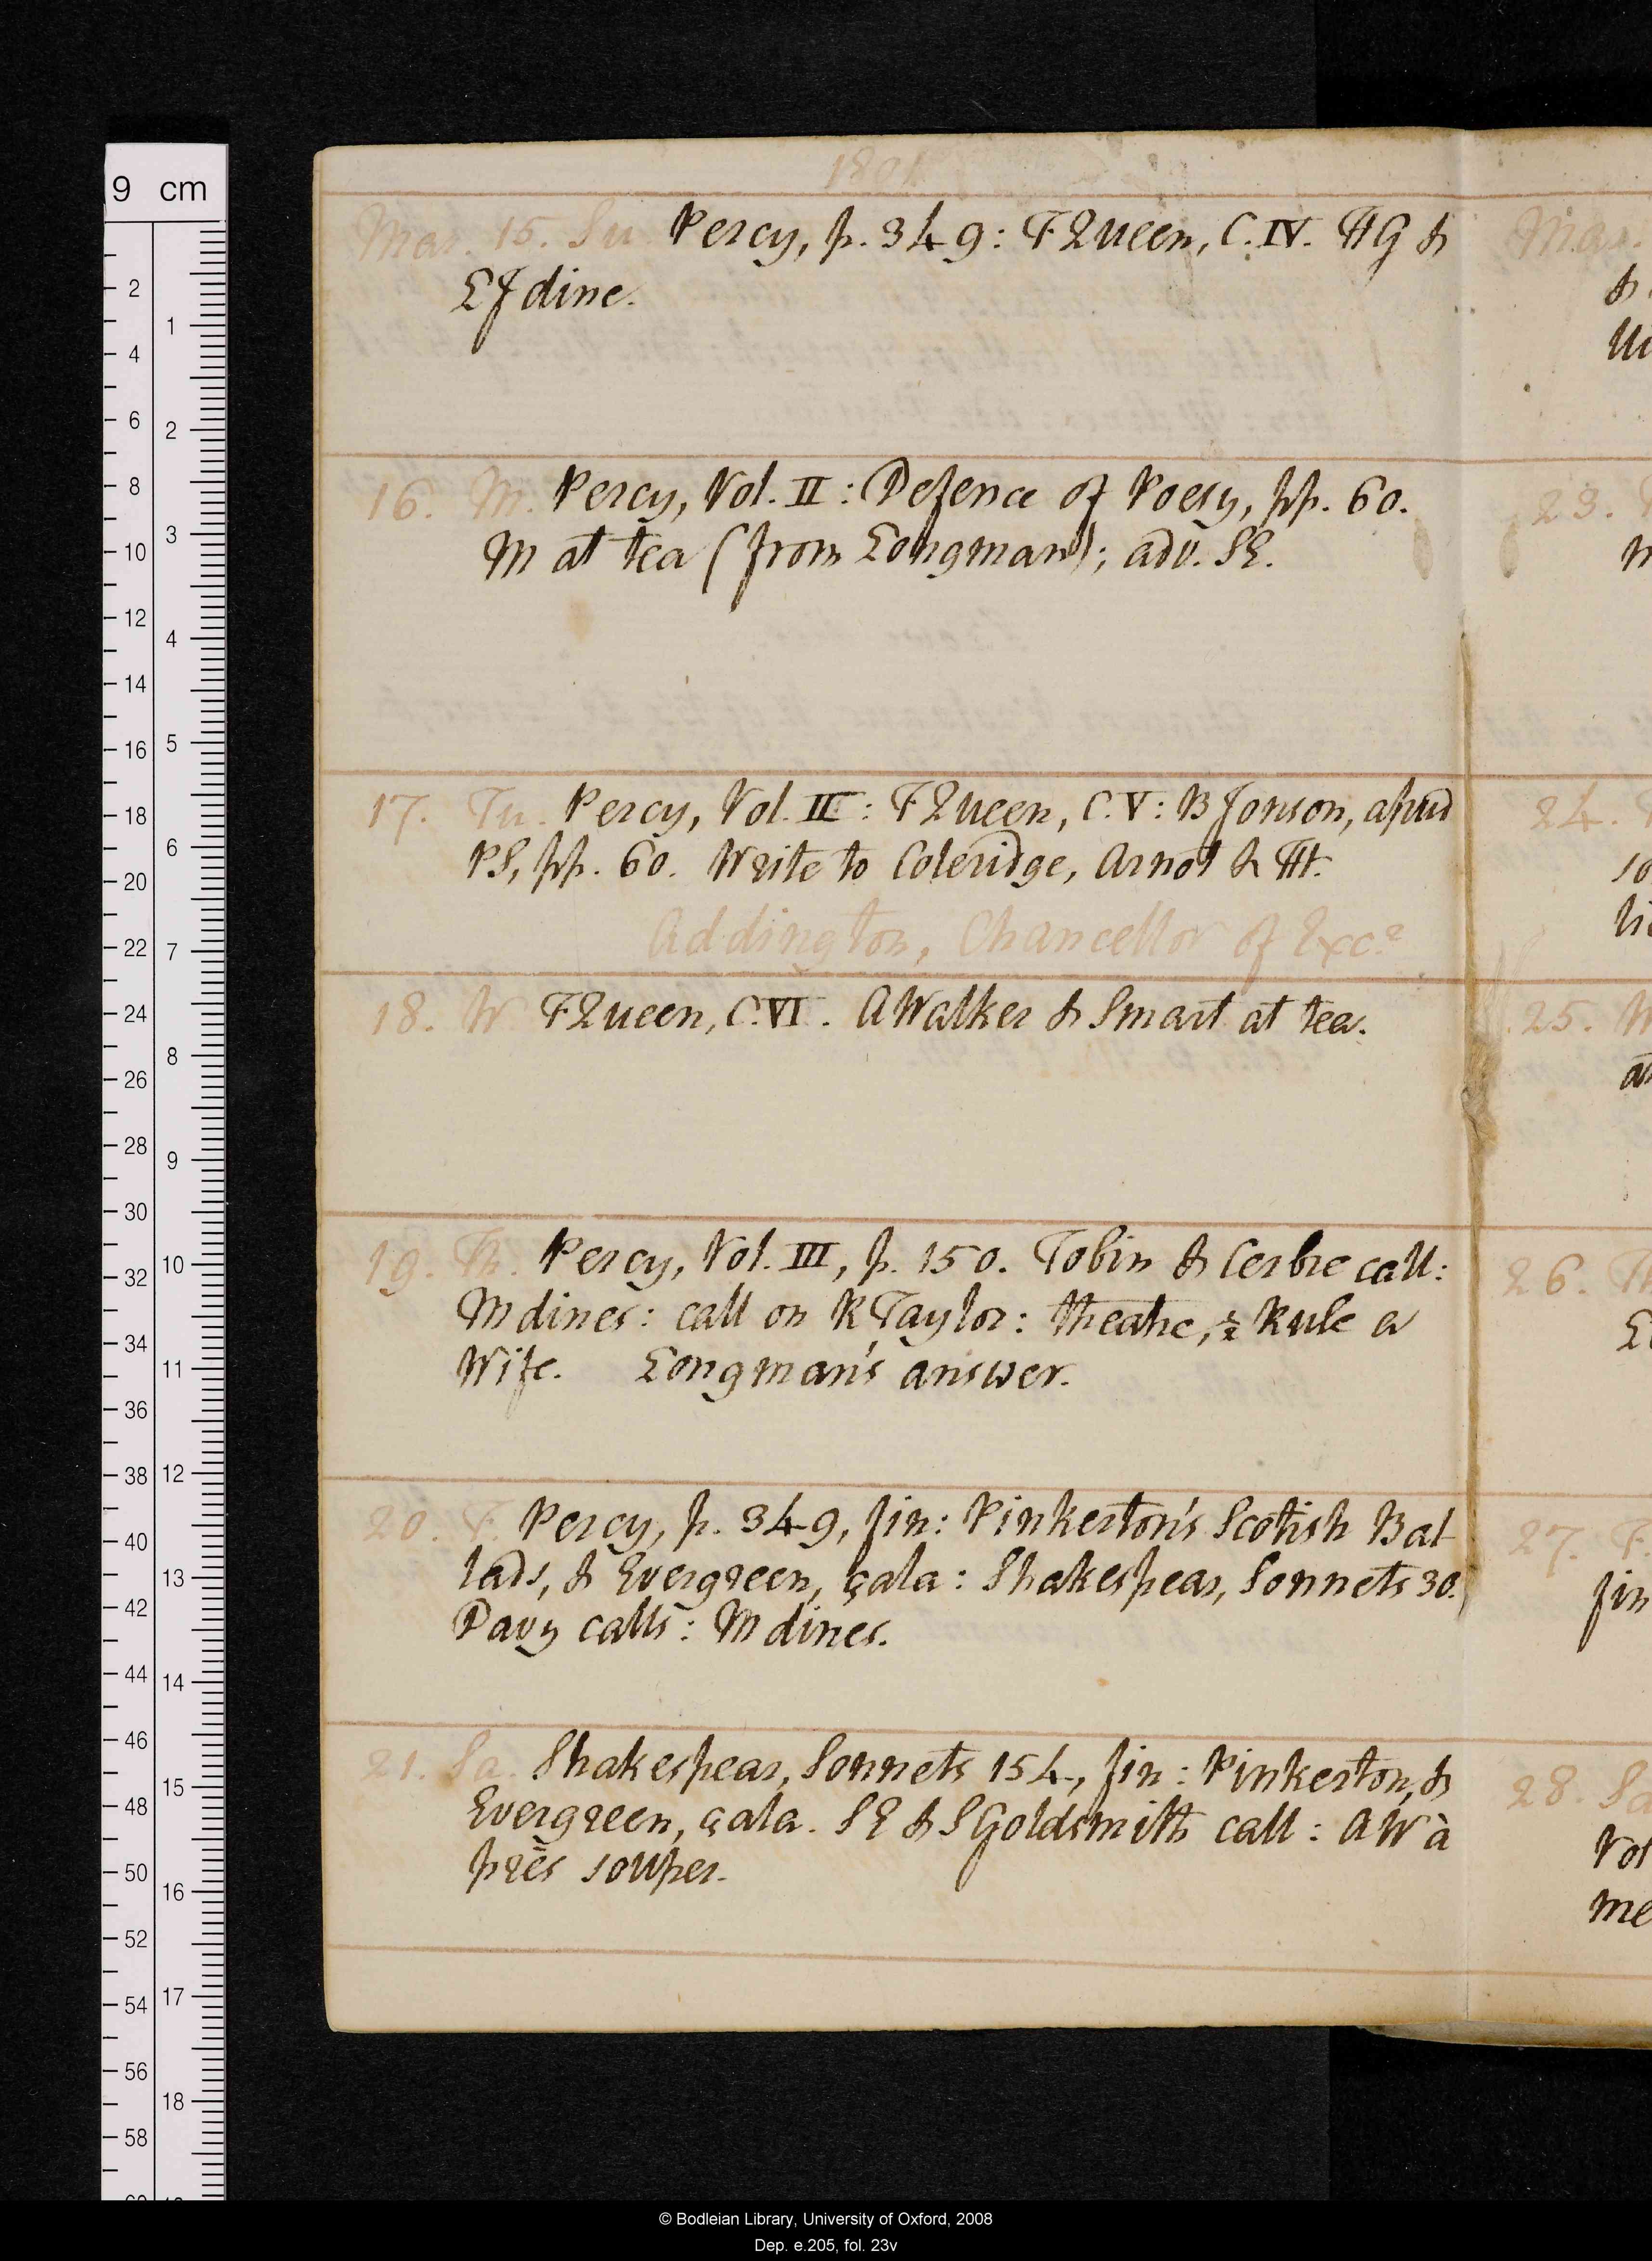 1801
Mar. 15. Su. Percy, p. 349: F Queen, C. IV. HG &
EJ dine.
16. M. Percy, Vol. II: Defence of Poesy, pp. 60.
M at tea (from Longman); adv. SE.
17. Tu. Percy, Vol. III: F Queen, C. V: B Jonson, apud
PS, pp. 60. Write to Coleridge, Arnot & Ht.
Addington, Chancellor of Excr
18. W F Queen, C. VI. A Walker & Smart at tea.
19. Th. Percy, Vol. III, p. 150. Tobin & call:
M dines: call on R Taylor: theatre, ½ Rule a
Wife. Longman's answer.
20. F. Percy, p. 349, fin: Pinkerton's Scotish Bal-
lads, & Evergreen, çala: Shakespear, Sonnets 30.
Davy calls: M dines.
21. Sa. Shakespear, Sonnets 154, fin: Pinkerton, &
Evergreen, çala. SE & S Goldsmith call: AW à
près souper.
Mar.
&
23.
24.
so
25. W
26. Th
27. F.
fin
28. Sa
Vol
me
9 cm
2
4
6
8
10
12
14
16
18
20
22
24
26
28
30
32
34
36
38
40
42
44
46
48
50
52
54
56
58
1
2
3
4
5
6
7
8
9
10
11
12
13
14
15
16
17
18
© Bodleian Library, University of Oxford, 2008
Dep. e.205, fol. 23v